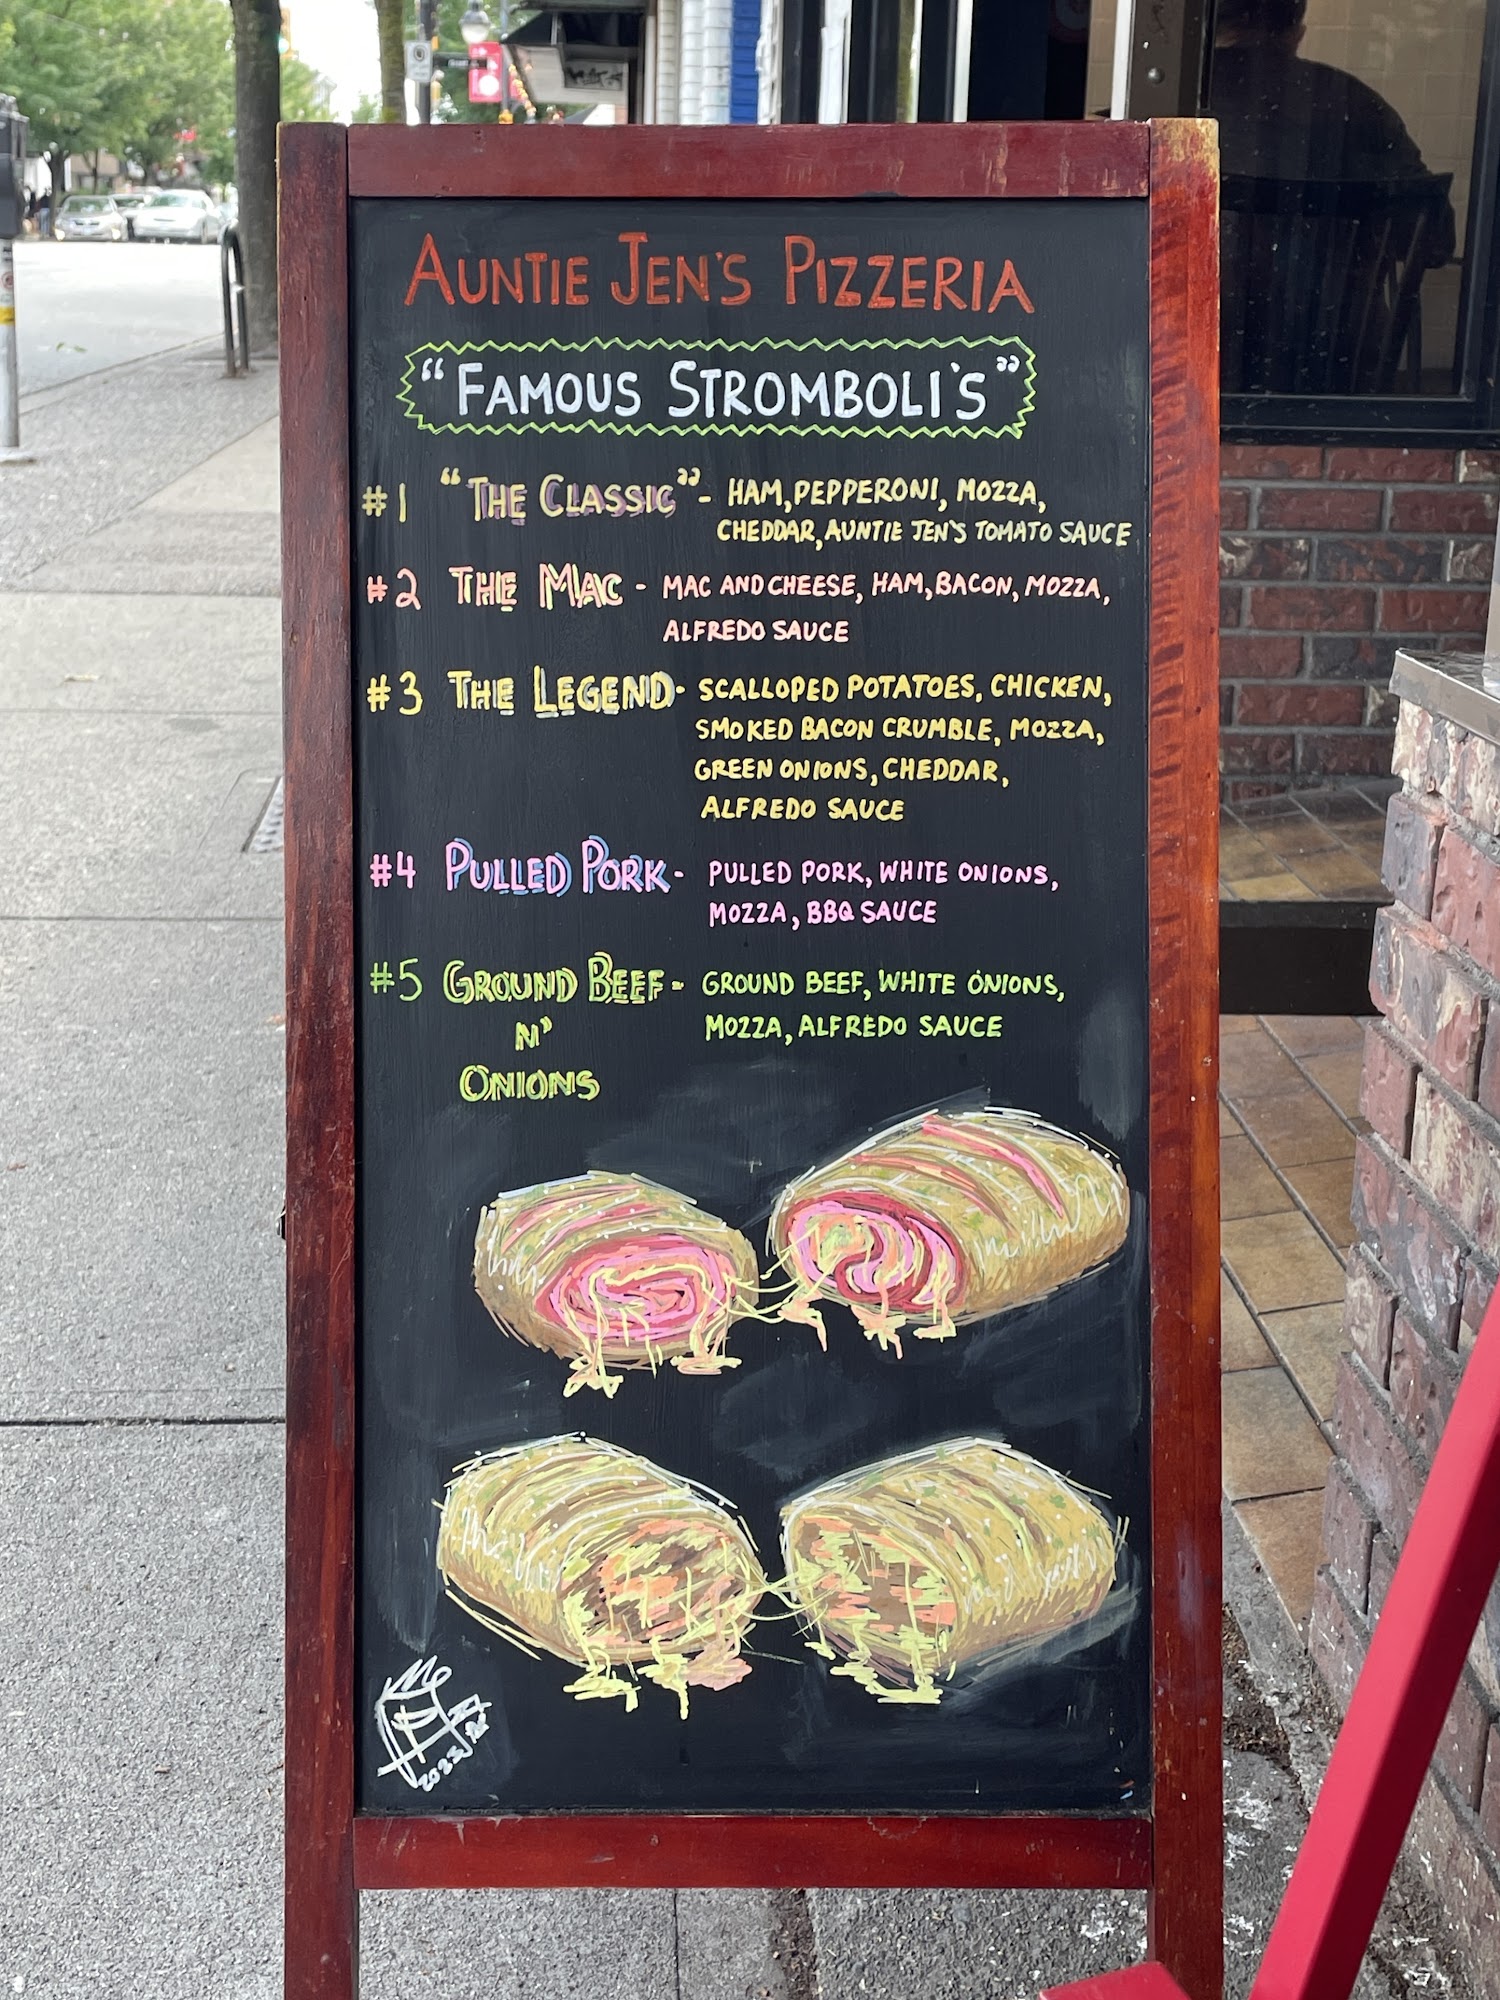 AUNTIE JEN'S PIZZERIA
"FAMOUS STROMBOLI'S"
#1 "THE CLASSIC" - HAM, PEPPERONI, MOZZA,
CHEDDAR, AUNTIE JEN'S TOMATO SAUCE
#2 THE MAC - MAC AND CHEESE, HAM, BACON, MOZZA,
ALFREDO SAUCE
#3 THE LEGEND - SCALLOPED POTATOES, CHICKEN,
SMOKED BACON CRUMBLE, MOZZA,
GREEN ONIONS, CHEDDAR,
ALFREDO SAUCE
#4 PULLED PORK - PULLED PORK, WHITE ONIONS,
MOZZA, BBQ SAUCE
#5 GROUND BEEF - GROUND BEEF, WHITE ONIONS,
N" MOZZA, ALFREDO SAUCE
ONIONS
2023